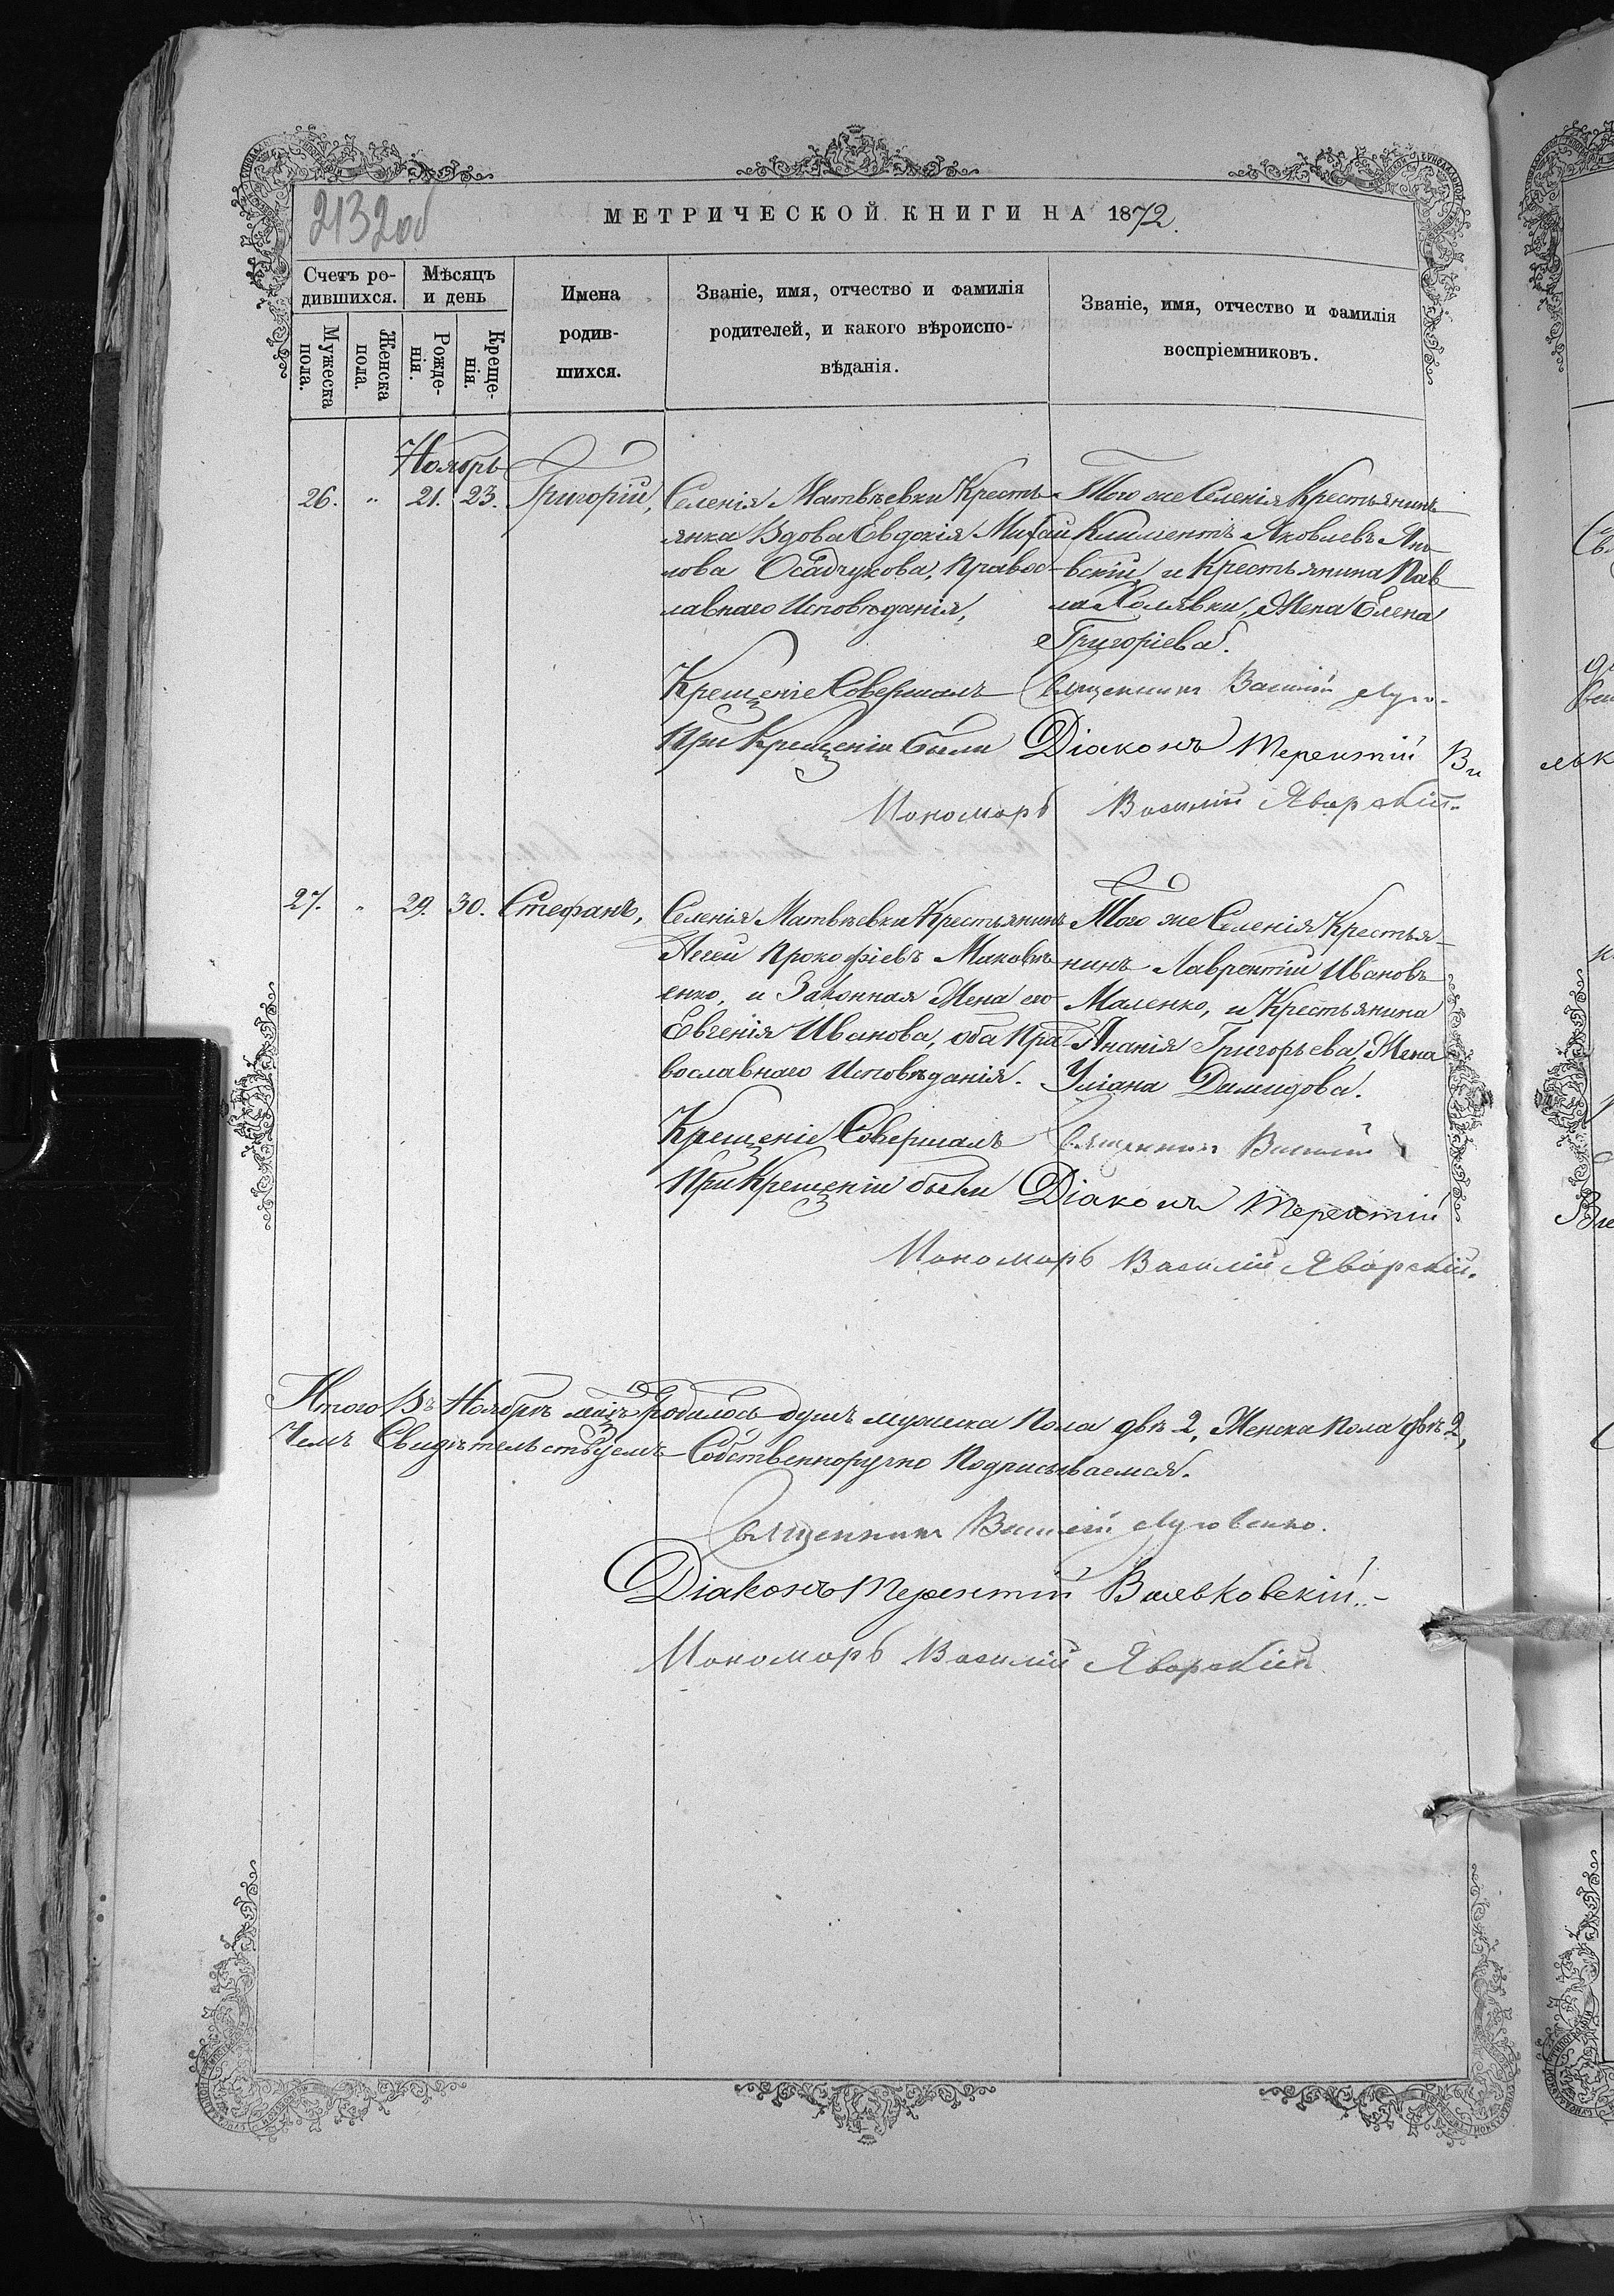 2132 об
МЕТРИЧЕСКОЙ КНИГИ НА 1872.
Счетъ ро-
дившихся.
Мѣсяцъ
и день
Мужеска
пола.
Женска
пола.
Рожде-
нія.
Креще-
нія.
Имена
родив-
шихся.
Званіе, имя, отчество и фамилія
родителей, и какого вѣроиспо-
вѣданія.
Званіе, имя, отчество и фамилія
воспріемниковъ.
Ноябрь
26. " 21. 23. Григорій,
Селенія Матвѣевки Кресть-
янка Вдова Евдокія Михай
лова Осадчукова, Правос-
лавнаго Исповѣданія,
Того же Селенія Крестьянинъ
Климентъ Яковлевъ
вскій, и Крестьянина Пав
ла Холявки, Жена Елена
Григоріева.
Крещеніе Совершалъ Священникъ Василій Луго-
При Крещеніи были Діаконъ Терентій Ва
Пономарь Василій Яворскій.
27. " 29. 30. Стефанъ,
Селенія Матвѣевки Крестьянинъ
Аггей Прокофіевъ
енко, и Законная Жена его
Евгенія Иванова, оба Пра-
вославнаго Исповѣданія.
Того же Селенія Крестья-
нинъ Лаврентій Ивановъ
Маленко, и Крестьянина
Ананія Григорьева, Жена
Уліана Дамидова.
Крещеніе Совершалъ Священникъ Василій
При Крещеніи были Діаконъ Терентій
Пономарь Василій Яворскій.
Итого Въ Ноябрѣ мцѣ Родилось душъ мужеска Пола двѣ 2, Женска Пола двѣ 2,
Чемъ Свидѣтельствуемъ Собственноручно Подписываемся.
Священникъ Василій Луговенко.
Діаконъ Терентій Вальковскій.-
Пономарь Василій Яворскій